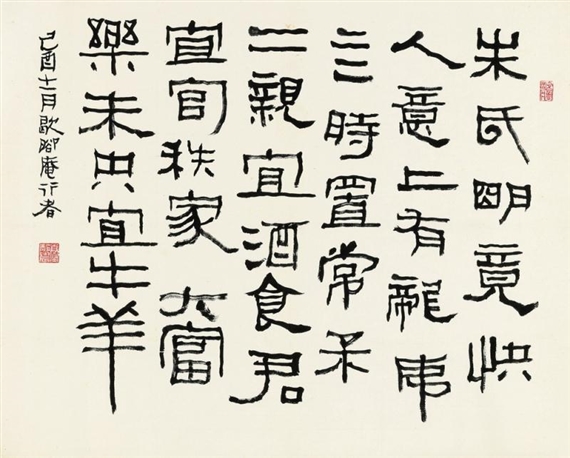 朱氏明竟快
人意上有龍虎
亖時置常保
二親宜酒食君
宜官秩家大富
樂未央宜牛羊
己酉十二月歇腳庵行者